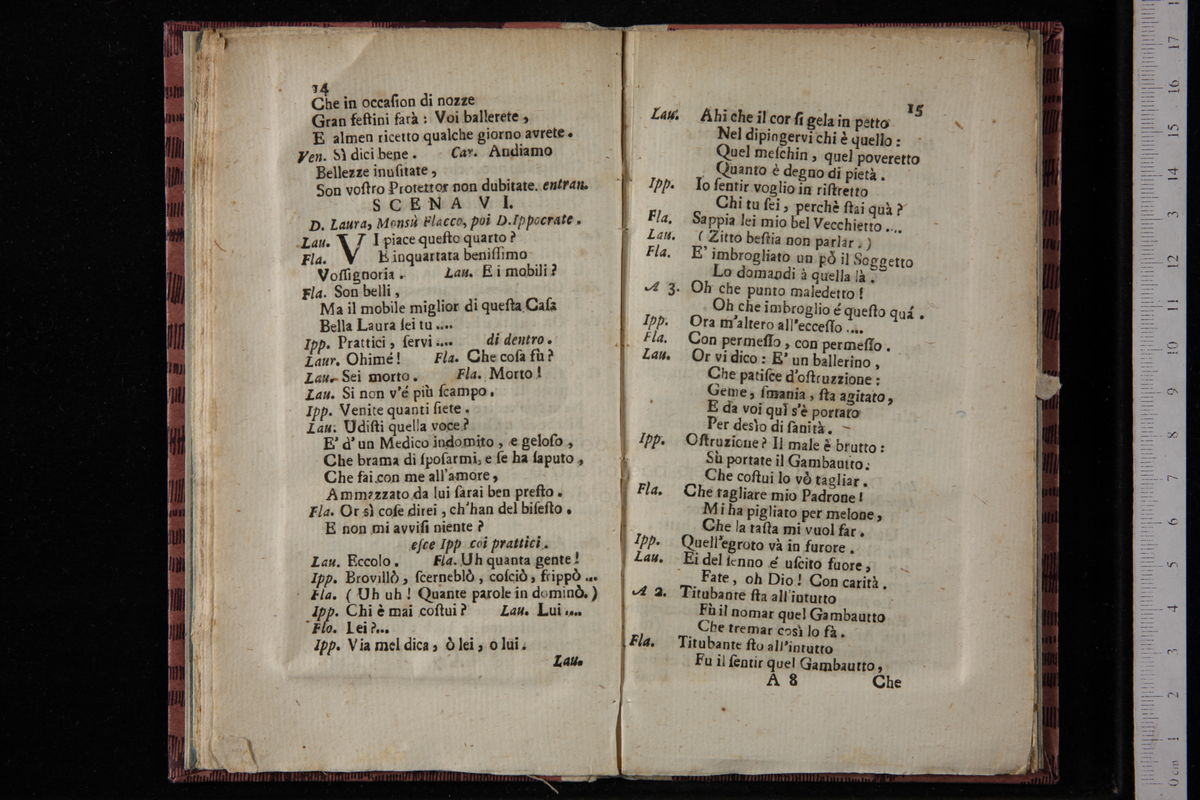 14
Che in occaſion di nozze
Gran feſtini farà : Voi ballerete ,
E almen ricetto qualche giorno avrete .
Ven. Sì dici bene . Cav. Andiamo
Bellezze inuſitate ,
Son voſtro Protettor non dubitate. entran.
SCENA VI.
D. Laura, Monsù Flacco, poi D.Ippocrate .
Lau. VI piace queſto quarto ?
Fla. E inquartata beniſſimo
Voſſignoria . Lau. E i mobili ?
Fla. Son belli ,
Ma il mobile miglior di queſta Caſa
Bella Laura ſei tu ....
Ipp. Prattici , ſervi .... di dentro .
Laur. Ohimé ! Fla. Che coſa fù ?
Lau. Sei morto . Fla. Morto !
Lau. Si non v'é più ſcampo .
Ipp. Venite quanti ſiete .
Lau. Udiſti quella voce ?
E' d'un Medico indomito , e geloſo ,
Che brama di ſpoſarmi, e ſe ha ſaputo ,
Che fai con me all'amore ,
Ammazzato da lui ſarai ben preſto .
Fla. Or sì coſe direi , ch'han del biſeſto .
E non mi avviſi niente ?
eſce Ipp coi prattici .
Lau. Eccolo . Fla. Uh quanta gente !
Ipp. Brovillò , ſcerneblò , coſciò , frippò ...
Fla. ( Uh uh ! Quante parole in dominò. )
Ipp. Chi è mai coſtui ? Lau. Lui ....
Flo. Lei ?...
Ipp. Via mel dica , ò lei , o lui .
Lau.
15
Lau. Ahi che il cor ſi gela in petto
Nel dipingervi chi è quello :
Quel meſchin , quel poveretto
Quanto è degno di pietà .
Ipp. Io ſentir voglio in riſtretto
Chi tu ſei , perchè ſtai quà ?
Fla. Sappia lei mio bel Vecchietto ....
Lau. ( Zitto beſtia non parlar . )
Fla. E' imbrogliato un pò il Soggetto
Lo domandi à quella là .
A 3. Oh che punto maledetto !
Oh che imbroglio é queſto quá .
Ipp. Ora m'altero all'ecceſſo ....
Fla. Con permeſſo , con permeſſo .
Lau. Or vi dico : E' un ballerino ,
Che patiſce d'oſtruzzione :
Geme , ſmania , ſta agitato ,
E da voi quì s'è portato
Per desìo di ſanità .
Ipp. Oſtruzione ? Il male è brutto :
Sù portate il Gambautto .
Che coſtui lo vò tagliar .
Fla. Che tagliare mio Padrone !
Mi ha pigliato per melone ,
Che la taſta mi vuol far .
Ipp. Quell'egroto và in furore .
Lau. Ei del ſenno é uſcito fuore ,
Fate , oh Dio ! Con carità .
A 2. Titubante ſta all'intutto
Fù il nomar quel Gambautto
Che tremar così lo fà .
Fla. Titubante ſto all'intutto
Fu il ſentir quel Gambautto ,
A 8 Che
0 cm 1 2 3 4 5 6 7 8 9 10 11 12 13 14 15 16 17